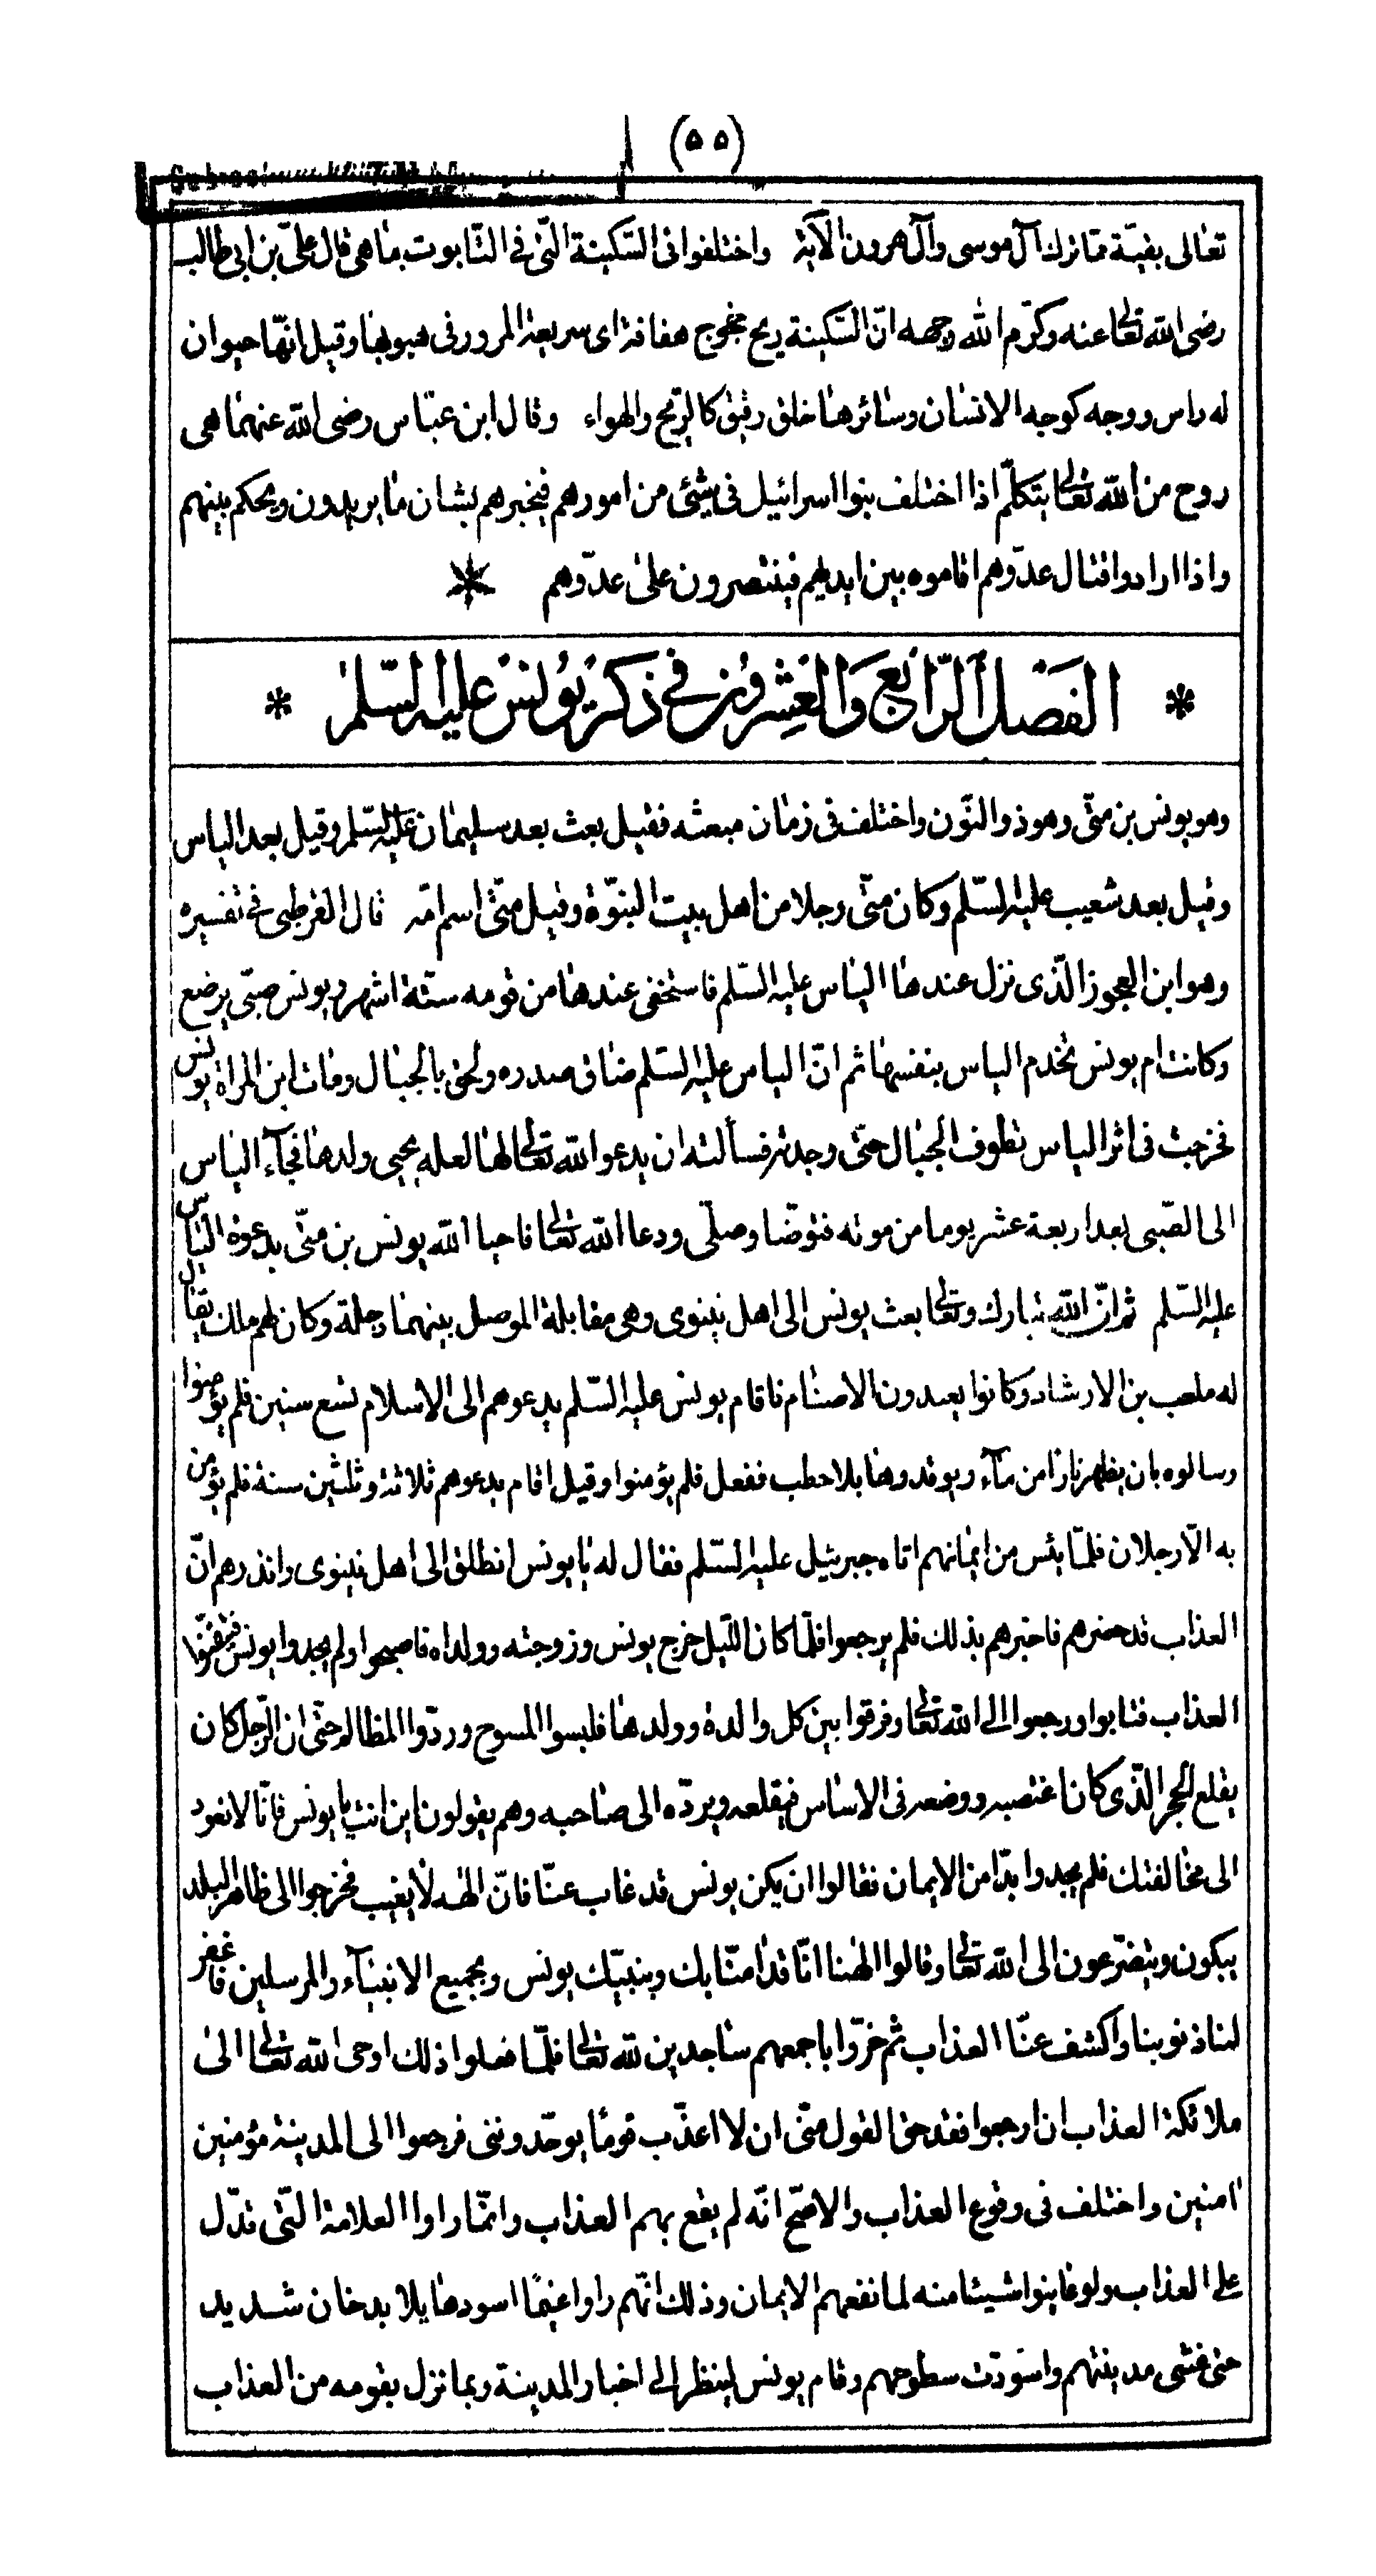 (٥٥)
تعالى بقيّة ممّا ترك آل موسى وآل هرون الآية واختلفوا فى السّكينة الّتى فى التّابوت ما هى قال علىّ بن ابى طالب
رضى الله تعالى عنه وكرّم الله وجهه انّ السّكينة ريح خجوج هفافة اى سريعة المرور فى هبوبها وقيل انّها حيوان
له راس ووجه كوجه الانسان وسائرها خلق رقيق كالرّيح والهواء وقال ابن عبّاس رضى الله عنهما هى
روح من الله تعالى يتكلّم اذا اختلف بنوا اسرائيل فى شئ من امورهم فيخبرهم بشان ما يريدون ويحكم بينهم
واذا ارادوا قتال عدّوهم اقاموه بين ايديهم فينتصرون على عدّوهم *
* الفصل الرّابع والعشرون فى ذكر يونس عليه السّلم *
وهو يونس بن متّى وهو ذو النّون واختلف فى زمان مبعثه فقيل بعث بعد سليمان عليه السّلم وقيل بعد الياس
وقيل بعد شعيب عليه السّلم وكان متّى رجلا من اهل بيت النبوّة وقيل متّى اسم امّه قال القرطبى فى تفسيره
وهو ابن العجوز الّذى نزل عندها الياس عليه السّلم فاستخفى عندها من قومه ستّة اشهر ويونس صبّى يرضع
وكانت ام يونس تخدم الياس بنفسها ثم انّ الياس عليه السّلم ضاق صدره ولحق بالجبال ومات ابن المراة يونس
فخرجت فى اثر الياس تطوف الجبال حتّى وجدته فسألته ان يدعوا الله تعالى لها لعله يحيى ولدها فجآء الياس
الى الصّبى بعد اربعة عشر يوما من موته فتوضّا وصلّى ودعا الله تعالى فاحيا الله يونس بن متّى بدعوة الياس
عليه السّلم ثم انّ الله تبارك وتعالى بعث يونس الى اهل نينوى وهى مقابلة الموصل بينهما دجلة وكان لهم ملك يقال
له ملعب بن الارشاد وكانوا يعبدون الاصنام فاقام يونس عليه السّلم يدعوهم الى الاسلام تسع سنين فلم يؤمنوا
وسالوه بان يظهر نارًا من مآء ويوقدوها بلا حطب ففعل فلم يؤمنوا وقيل اقام يدعوهم ثلاثة وثلثين سنة فلم يؤمن
به الّا رجلان فلمّا يئس من ايمانهم اتاه جبرئيل عليه السّلم فقال له يا يونس انطلق الى اهل نينوى وانذرهم انّ
العذاب قد حضرهم فاخبرهم بذلك فلم يرجعوا فلمّا كان اللّيل خرج يونس وزوجته وولداه فاصبحوا ولم يجدوا يونس فتيقّنوا
العذاب فتابوا ورجعوا الى الله تعالى وفرقوا بين كل والدة وولدها فلبسوا المسوح وردّوا المظالم حتّى ان الرّجل كان
يقلع الحجر الّذى كان اغتصبه ووضعه فى الاساس فيقلعه ويردّه الى صاحبه وهم يقولون اين انت يا يونس فانّا لا نعود
الى مخالفتك فلم يجدوا بدّا من الايمان فقالوا ان يكن يونس قد غاب عنّا فانّ الهه لا يغيب فخرجوا الى ظاهر البلد
يبكون ويتضرّعون الى الله تعالى وقالوا الهنا انّا قد امنّا بك وبنبيّك يونس وبجميع الانبيآء والمرسلين فاغفر
لنا ذنوبنا واكشف عنّا العذاب ثم خرّوا باجمعهم ساجدين لله تعالى فلمّا فعلوا ذلك اوحى الله تعالى الى
ملائكة العذاب ان ارجعوا فقد حق القول منّى ان لا اعذّب قومًا يوحّدوننى فرجعوا الى المدينة مؤمنين
امنين واختلف فى وقوع العذاب والاصحّ انّه لم يقع بهم العذاب وانّما راوا العلامة الّتى تدّل
على العذاب ولو عاينوا شيئا منه لما نفعهم الايمان وذلك انّهم راوا غيمًا اسود هايلا بدخان شديد
حتى غشى مدينتهم واسودّت سطوحهم وقام يونس لينظر الى اخبار المدينة وبما نزل بقومه من العذاب